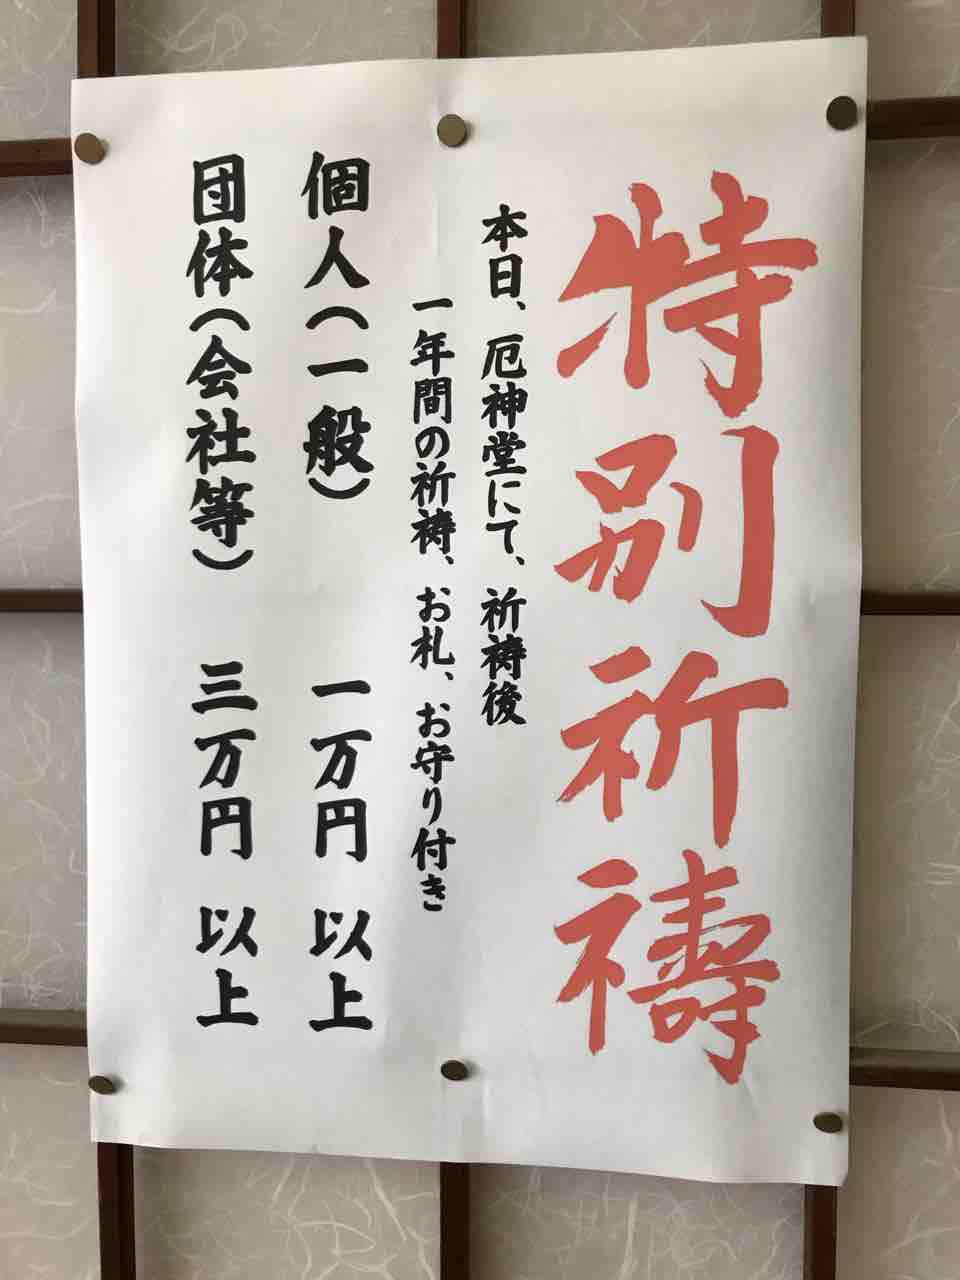 特別祈祷
本日、厄神堂にて、祈祷後
一年間の祈祷、お札、お守り付き
個人(一般) 一万円 以上
団体(会社等) 三万円 以上